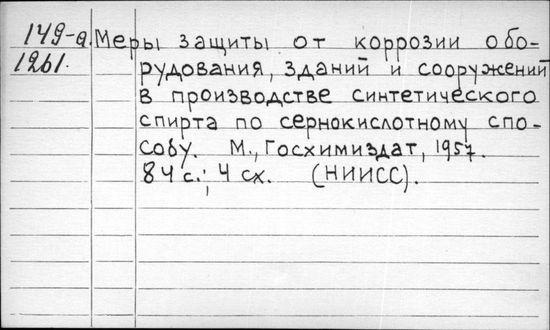 149-а. Меры защиты от коррозии обо-
1261. рудования, зданий и сооружений
в производстве синтетического
спирта по сернокислотному спо-
собу. М., Госхимиздат, 1957.
84 с.; 4 сх. (НИИСС).